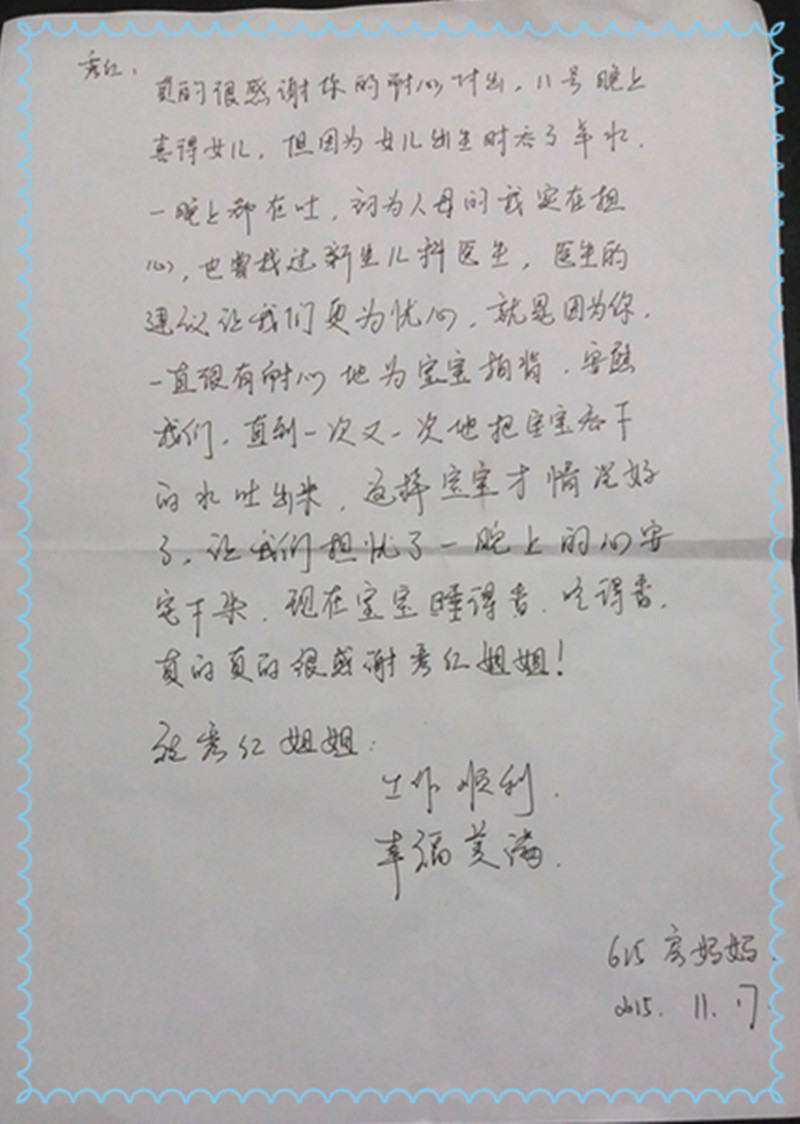 秀红：
真的很感谢你的耐心付出，11号晚上
喜得女儿，但因为女儿出生时吞了羊水，
一晚上都在吐，初为人母的我实在担
心，也曾找过新生儿科医生，医生的
建议让我们更为忧心，就是因为你，
一直很有耐心地为宝宝拍背，安慰
我们，直到一次又一次地把宝宝吞下
的水吐出来，这样宝宝才情况好
了，让我们担忧了一晚上的心安
定下来，现在宝宝睡得香，吃得香，
真的真的很感谢秀红姐姐！
祝秀红姐姐：
工作顺利，
幸福美满．
615房妈妈．
2015．11．17